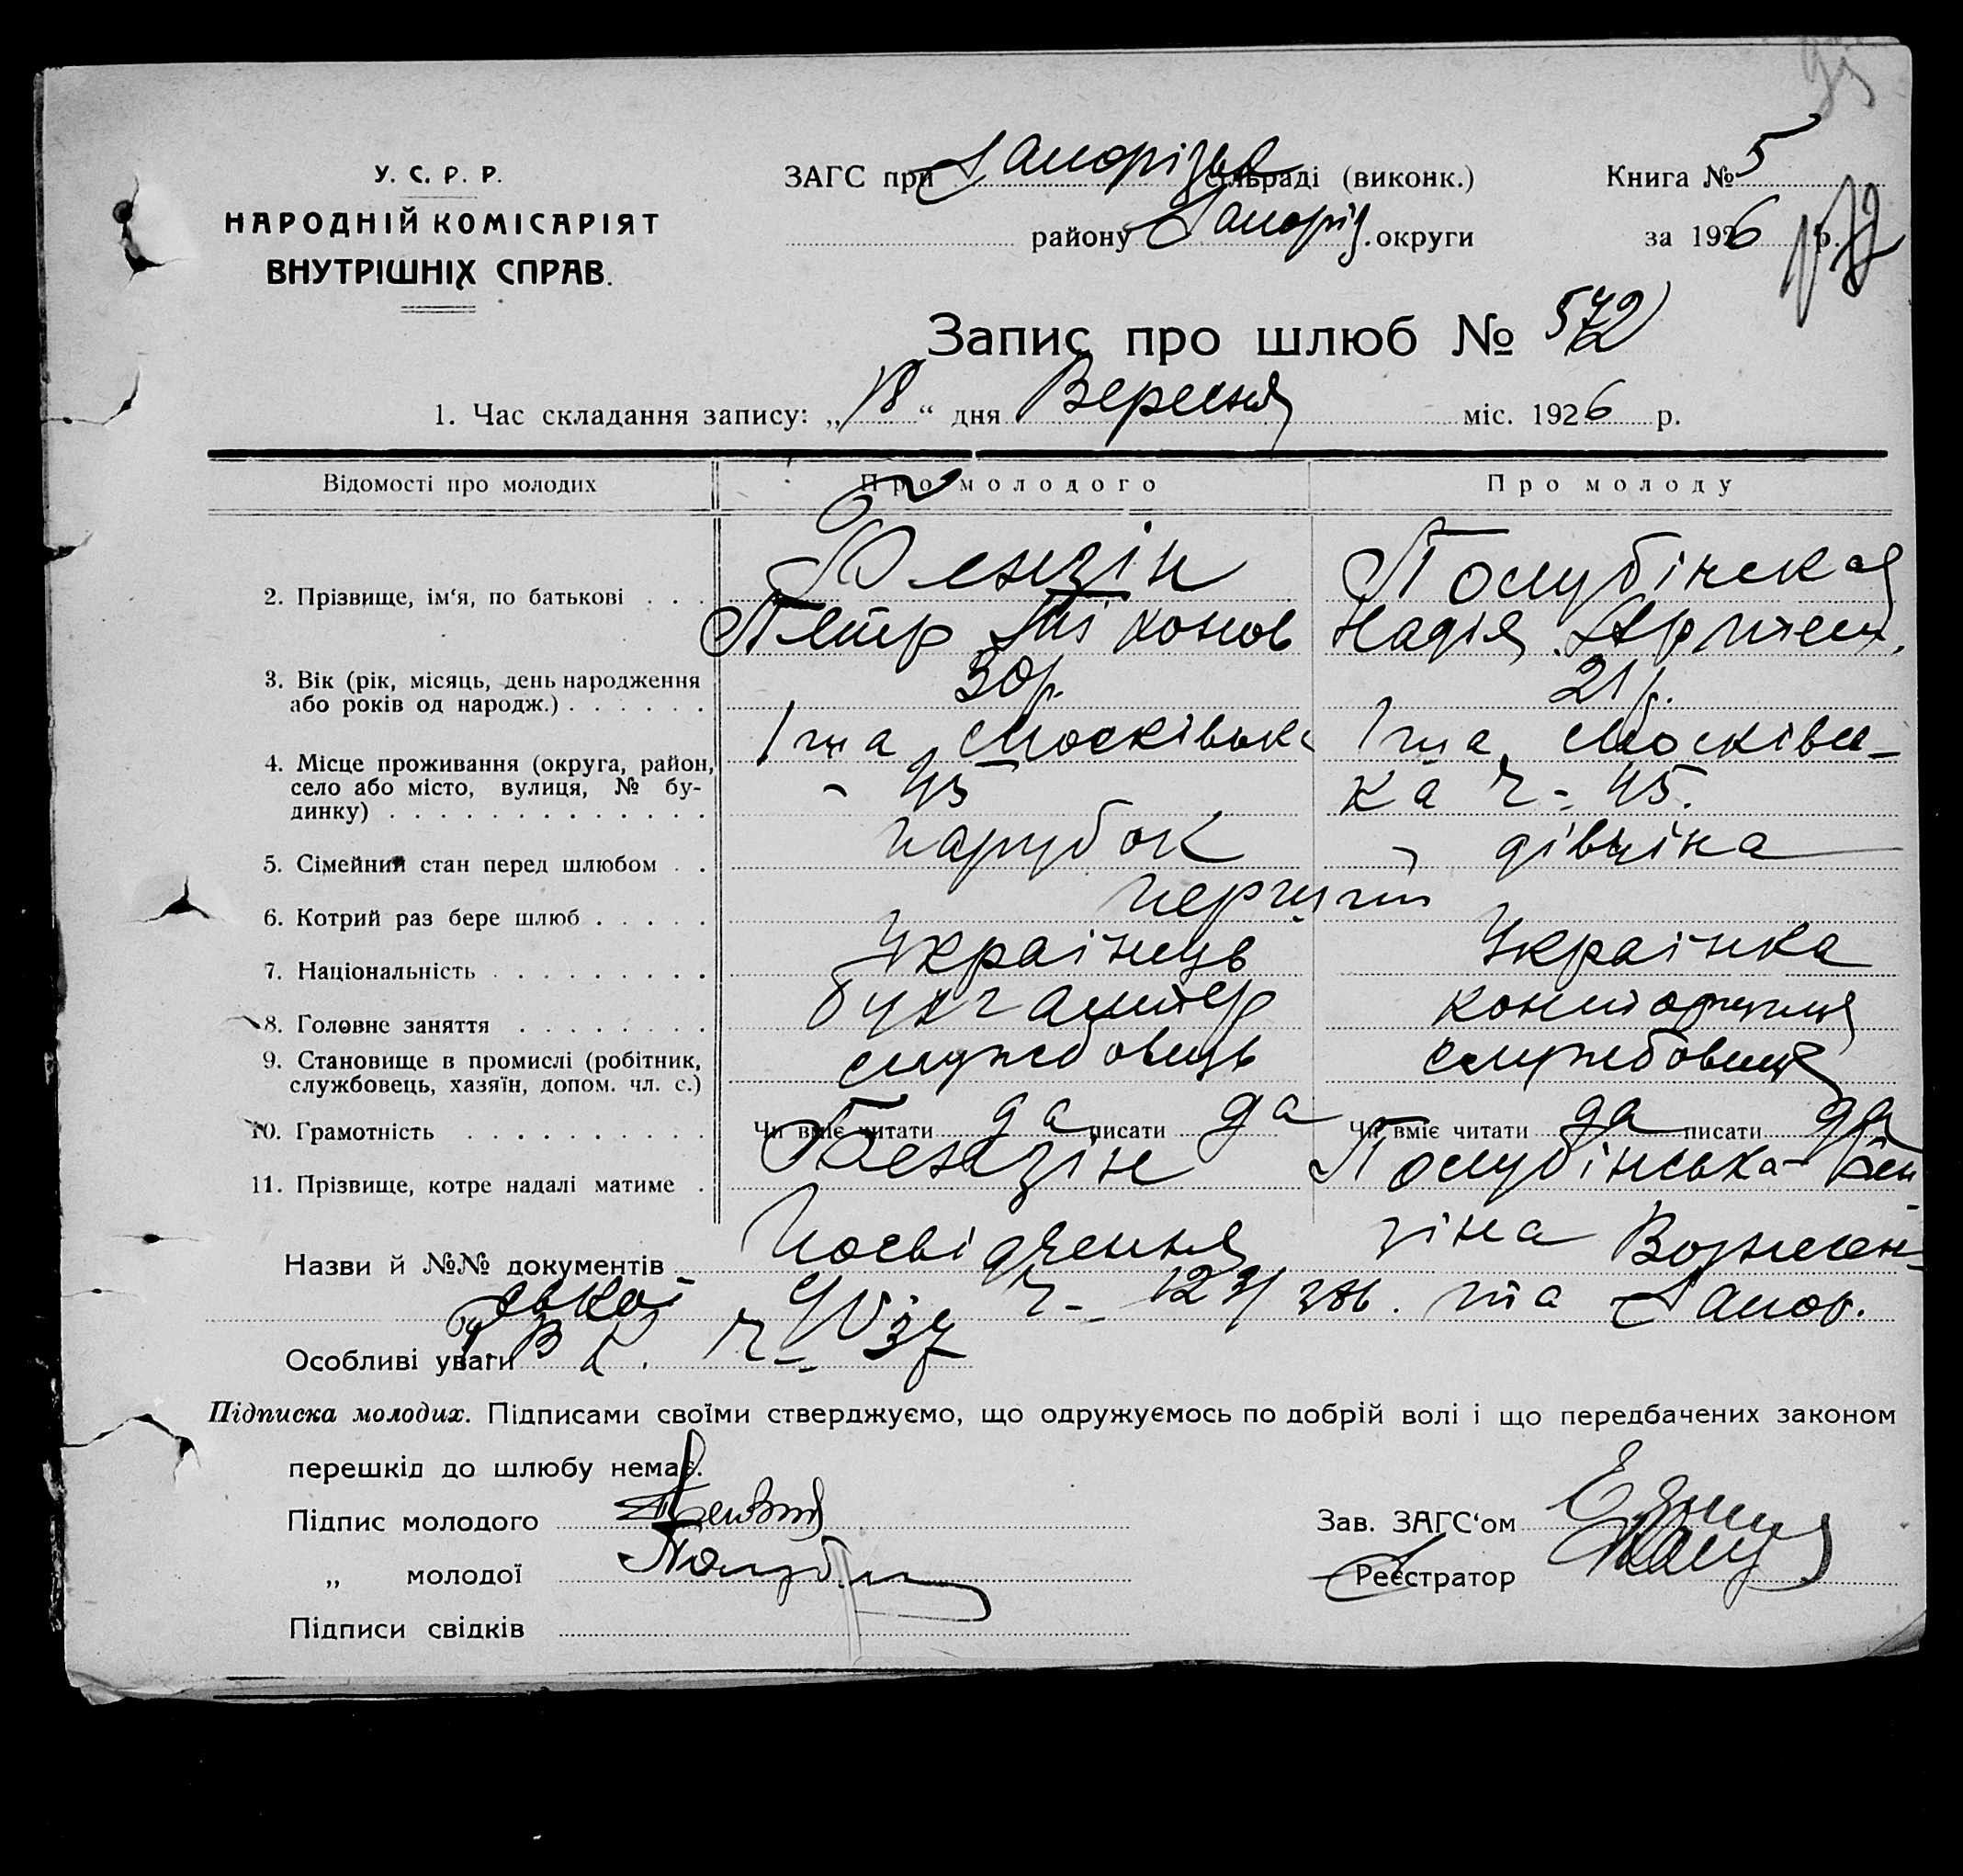 У. С. Р. Р.
НАРОДНІЙ КОМІСАРІЯТ
ВНУТРІШНІХ СПРАВ.
ЗАГС при Запорізьк сільраді (виконк.)
району Запоріз. округи
Книга № 5
за 1926 р.
Запис про шлюб № 572
1. Час складання запису: „18“ дня Вересня міс. 1926 р.
Відомості про молодих Про молодого Про молоду
2. Прізвище, ім‘я, по батькові . . . Бензін Полубінская
Петр Тіхонов Надія Артем.
3. Вік (рік, місяць, день народження
або років од народж.) . . . . . . 30 р. 21 р.
4. Місце проживання (округа, район,
село або місто, вулиця, № бу-
динку) . . . . . . . . . . . . .
1ша Московськ 1ша Московсь-
45 ка ч- 45.
5. Сімейний стан перед шлюбом . . парубок дівчіна
6. Котрий раз бере шлюб . . . . . перший
7. Національність . . . . . . . . . Украінець Украінка
8. Головне заняття . . . . . . . . бухгалтер конторщиця
9. Становище в промислі (робітник,
службовець, хазяїн, допом. чл. с.) службовець службовиця
10. Грамотність . . . . . . . . . . Чи вміє читати да писати да Чи вміє читати да писати да
11. Прізвище, котре надалі матиме . Бензін Полубінська-Бен
зіна
Назви й №№ документів Посвідчення
ч- та Запор.
Особливі уваги
Підписка молодих. Підписами своїми стверджуємо, що одружуємось по добрій волі і що передбачених законом
перешкід до шлюбу немає.
Підпис молодого Бензин
„ молодої
Підписи свідків
Зав. ЗАГС‘ом
Реєстратор